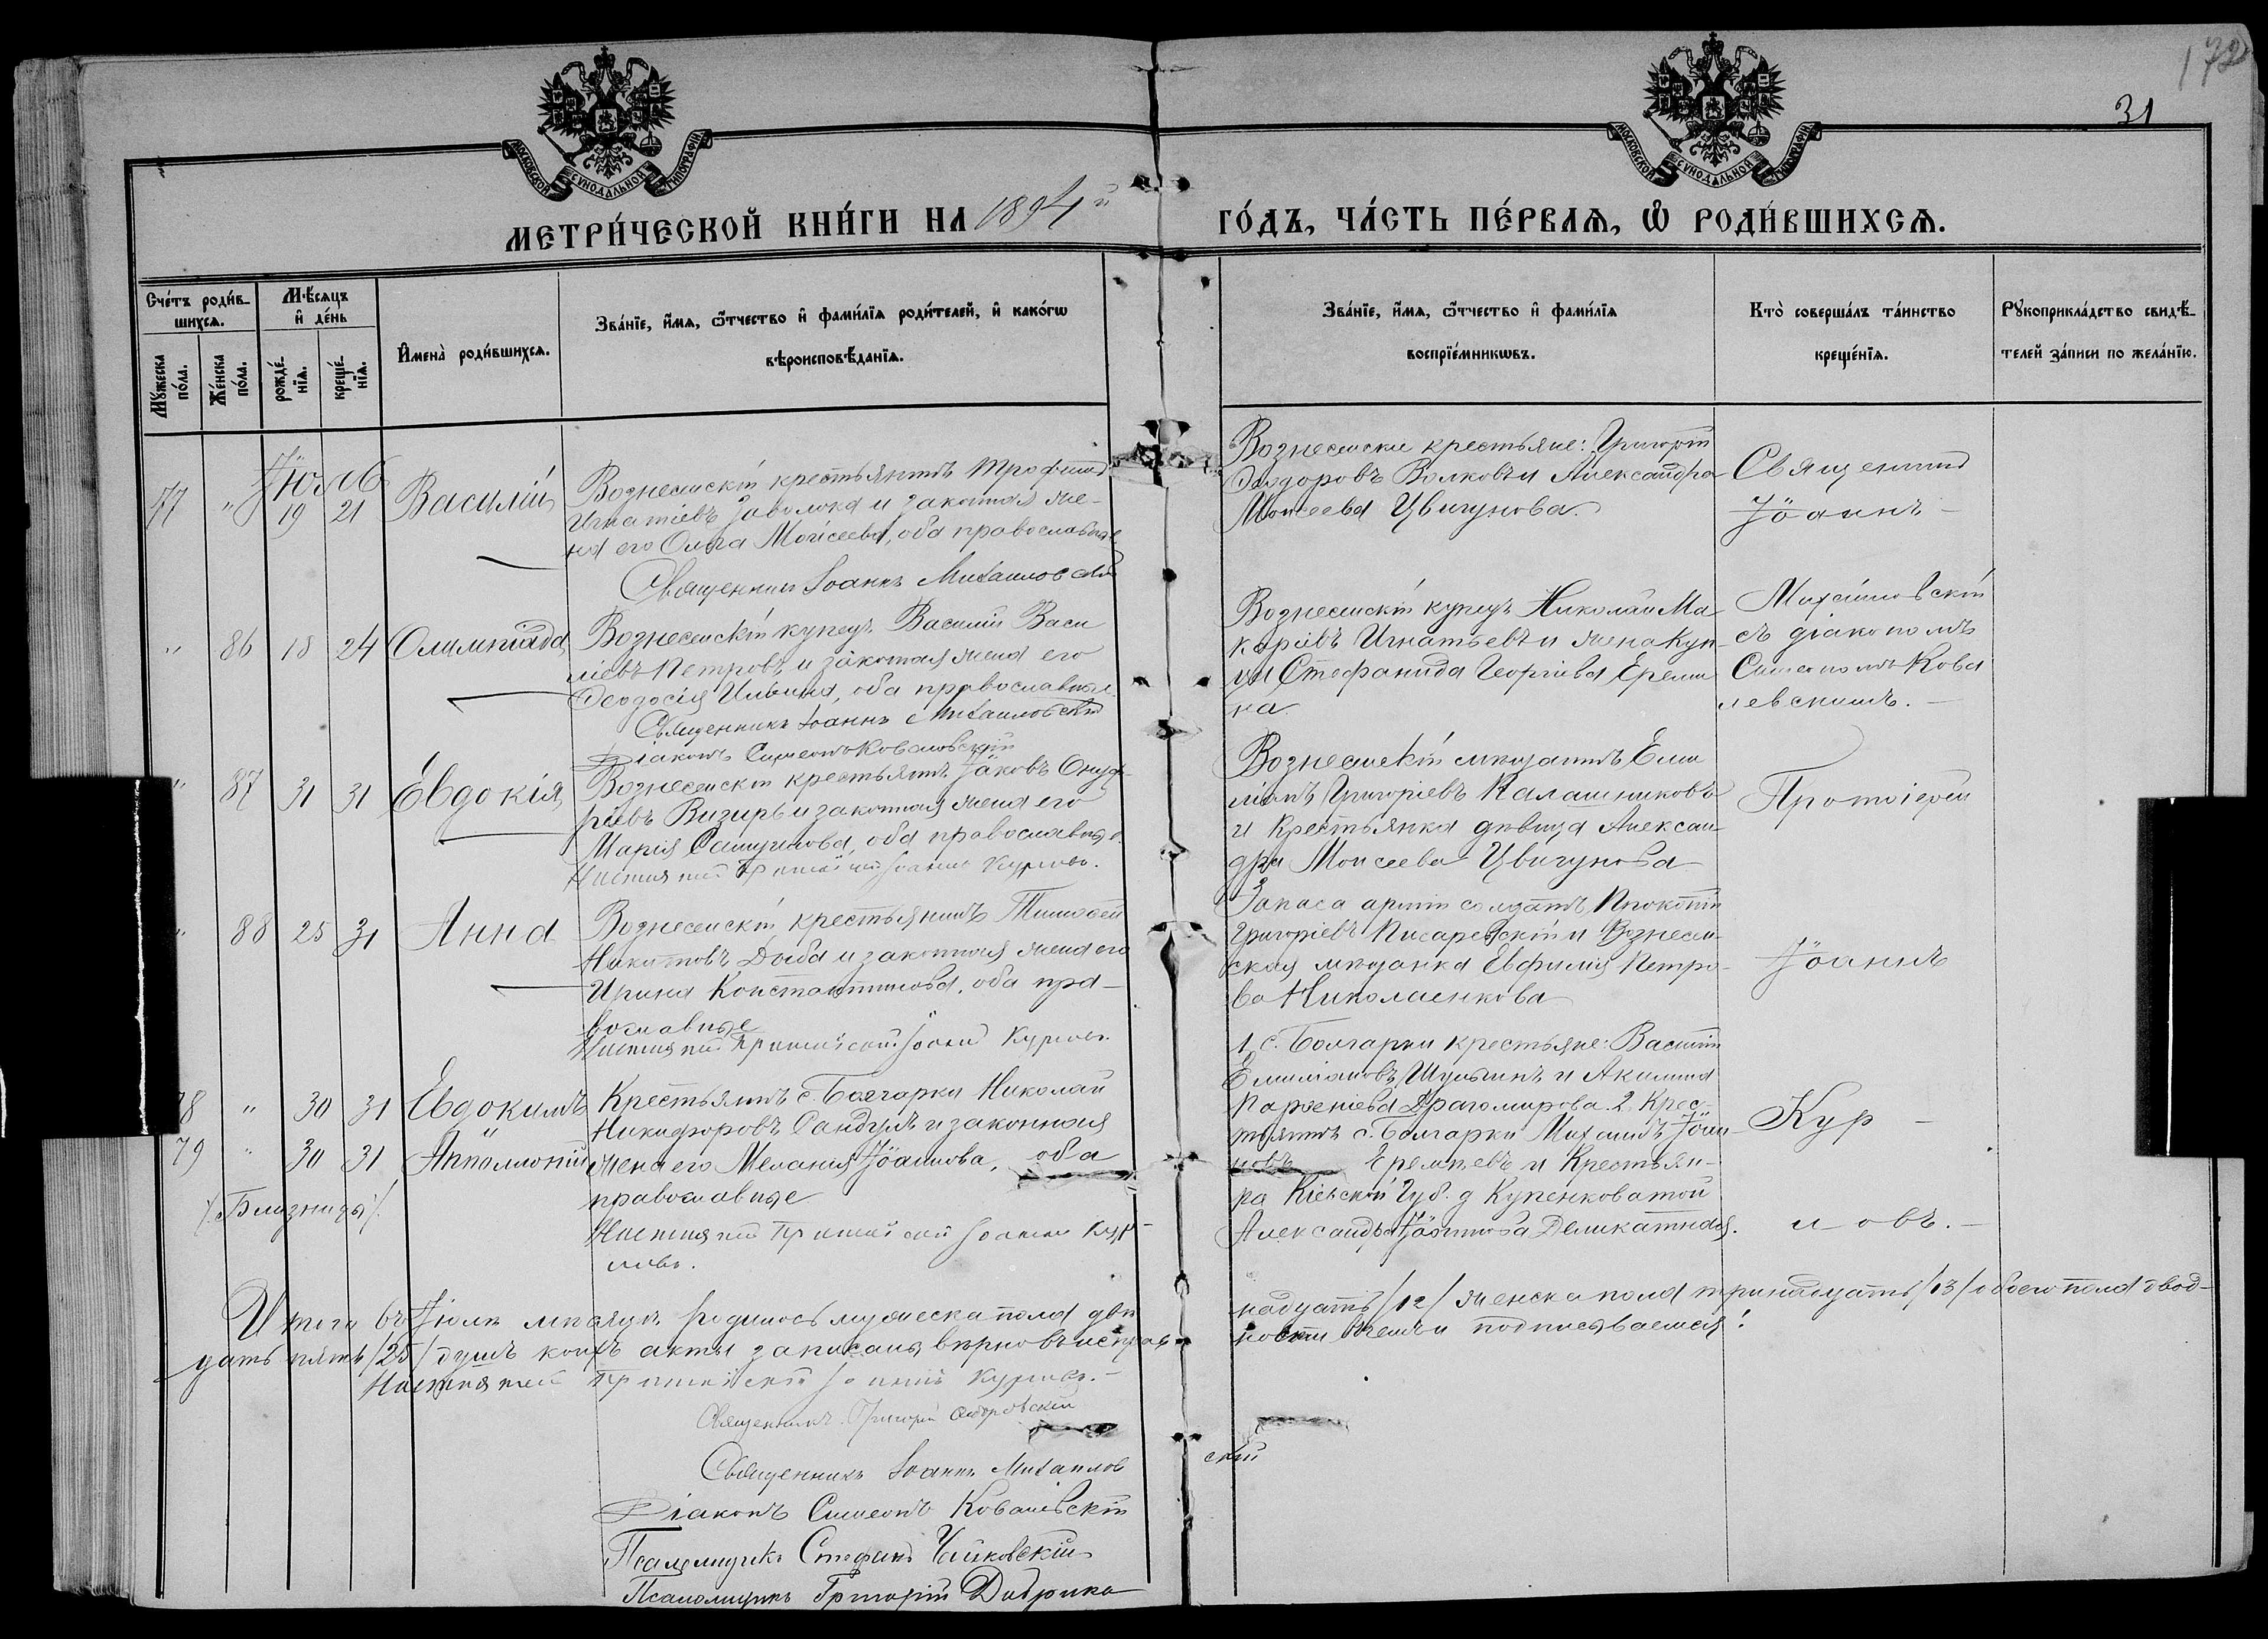 172
31
МОСКОВСКОЙ СѴНОДАЛЬНОЙ ТИПОГРАФІИ
МОСКОВСКОЙ СѴНОДАЛЬНОЙ ТИПОГРАФІИ
МЕТРИ́ЧЕСКОЙ КНИ́ГИ НА 1894й ГО́ДЪ, ЧА́СТЬ ПЕ́РВАЯ, Ѡ РОДИ́ВШИХСЯ.
Сче́тъ роди́в-
шихся.
Му́жеска по́ла.
Же́нска по́ла.
Мѣ́сяцъ и де́нь
рожде́нїя.
креще́нїя.
Имена̀ роди́вшихся.
Зва́нїе, и́мя, ѻ́тчество и фами́лїя роди́телей, и како́гѡ
вѣроисповѣ́данїя.
Зва́нїе, и́мя, ѻ́тчество и фами́лїя
воспрїе́мникѡвъ.
Кто̀ соверша́лъ та́инство
креще́нїя.
Рꙋкоприкла́дство свидѣ́-
телей за́писи по жела́нїю.
Іюль
77 " 19 21 Василій
Вознесенскій крестьянинъ Трофимъ
Игнатіевъ Заволока и законная же-
на его Ольга Моисеева, оба православные
Священникъ Іоаннъ Михаиловскій
Вознесенскіе крестьяне: Григорій
Ѳеодоровъ Волковъ и Александра
Моисеева Цвигунова.
Священникъ
Іоаннъ
" 86 18 24 Олимпіада
Вознесенскій купецъ Василій Васи
ліевъ Петровъ и законная жена его
Ѳеодосія Ильина, оба православные
Священникъ Іоаннъ Михаиловскій
Діаконъ Симеонъ Ковалевскій
Вознесенскій купецъ Николай Ма
каріевъ Игнатьевъ и жена куп
ца Стефанида Георгіева Ереми
на.
Михаиловскій
съ діакономъ
Симеономъ Кова
левскимъ.
" 87 31 31 Евдокія
Вознесенскій крестьянинъ Іаковъ Онуф
ріевъ Визирь и законная жена его
Марія Самуилова, оба православные.
Настоятель Протоіерей Іоаннъ Курловъ.
Вознесенскій мѣщанинъ Еми
ліанъ Григоріевъ Калашниковъ
и крестьянка дѣвица Алексан
дра Моисеева Цвигунова
Протоіерей
" 88 25 31 Анна
Вознесенскій крестьянинъ Тимоѳей
Никитовъ Дыба и законная жена его
Ирина Константинова, оба пра-
вославные
Настоятель Протоіерей Іоаннъ Курловъ.
Запаса арміи солдатъ Прокопій
Григоріевъ Писаревскій и Вознесен-
ская мѣщанка Евфимія Петро-
ва Николаенкова
Іоаннъ
78 " 30 31 Евдокимъ
79 " 30 31 Апполлоній
/Близнецы/
Крестьянинъ с. Болгарки Николай
Никифоровъ Сандулъ и законная
жена его Меланія Іоаннова, оба
православные
Настоятель Протоіерей Іоаннъ Кур-
ловъ.
1, с. Болгарки крестьяне: Василій
Емиліановъ Шульгинъ и Акилина
Парѳеніева Драгомирова. 2, Крес-
тьянинъ с. Болгарки Михаилъ Іоан-
новъ Еремѣевъ и Крестьян-
ка Кіевской Губ. д. Купенковатой
Александра Іоаннова Деликатная.
Кур-
ловъ.
Итого въ Іюлѣ мѣсяцѣ родилось мужеска пола двѣ надцать /12/ женска пола тринадцать /13/ обоего пола двад-
цать пять /25/ душъ коихъ акты записаны вѣрно въ исправ ности въ чемъ и подписываемся:
Настоятель Протоіерей Іоаннъ Курловъ.
Священникъ Григорій
Священникъ Іоаннъ Михаилов скій
Діаконъ Симеонъ Ковалевскій
Псаломщикъ Стефанъ Чайковскій
Псаломщикъ Григорій Добрика